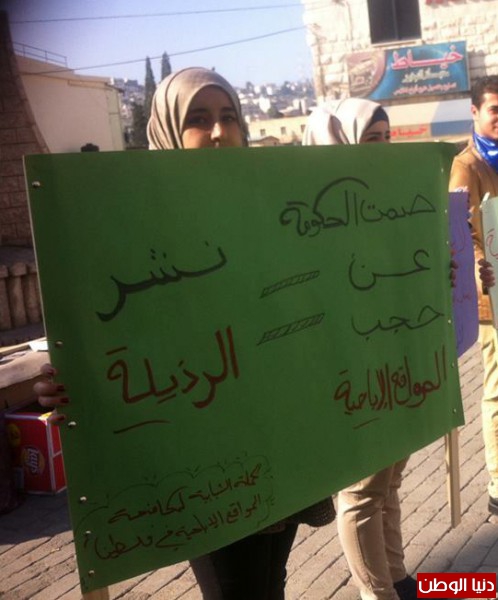 خياط
صمت الحكومة
عن
حجب
المواقع الإباحية
=
نشر
الرذيلة
الحملة الشبابية لمكافحة
المواقع الإباحية في فلسطين
دنيا الوطن